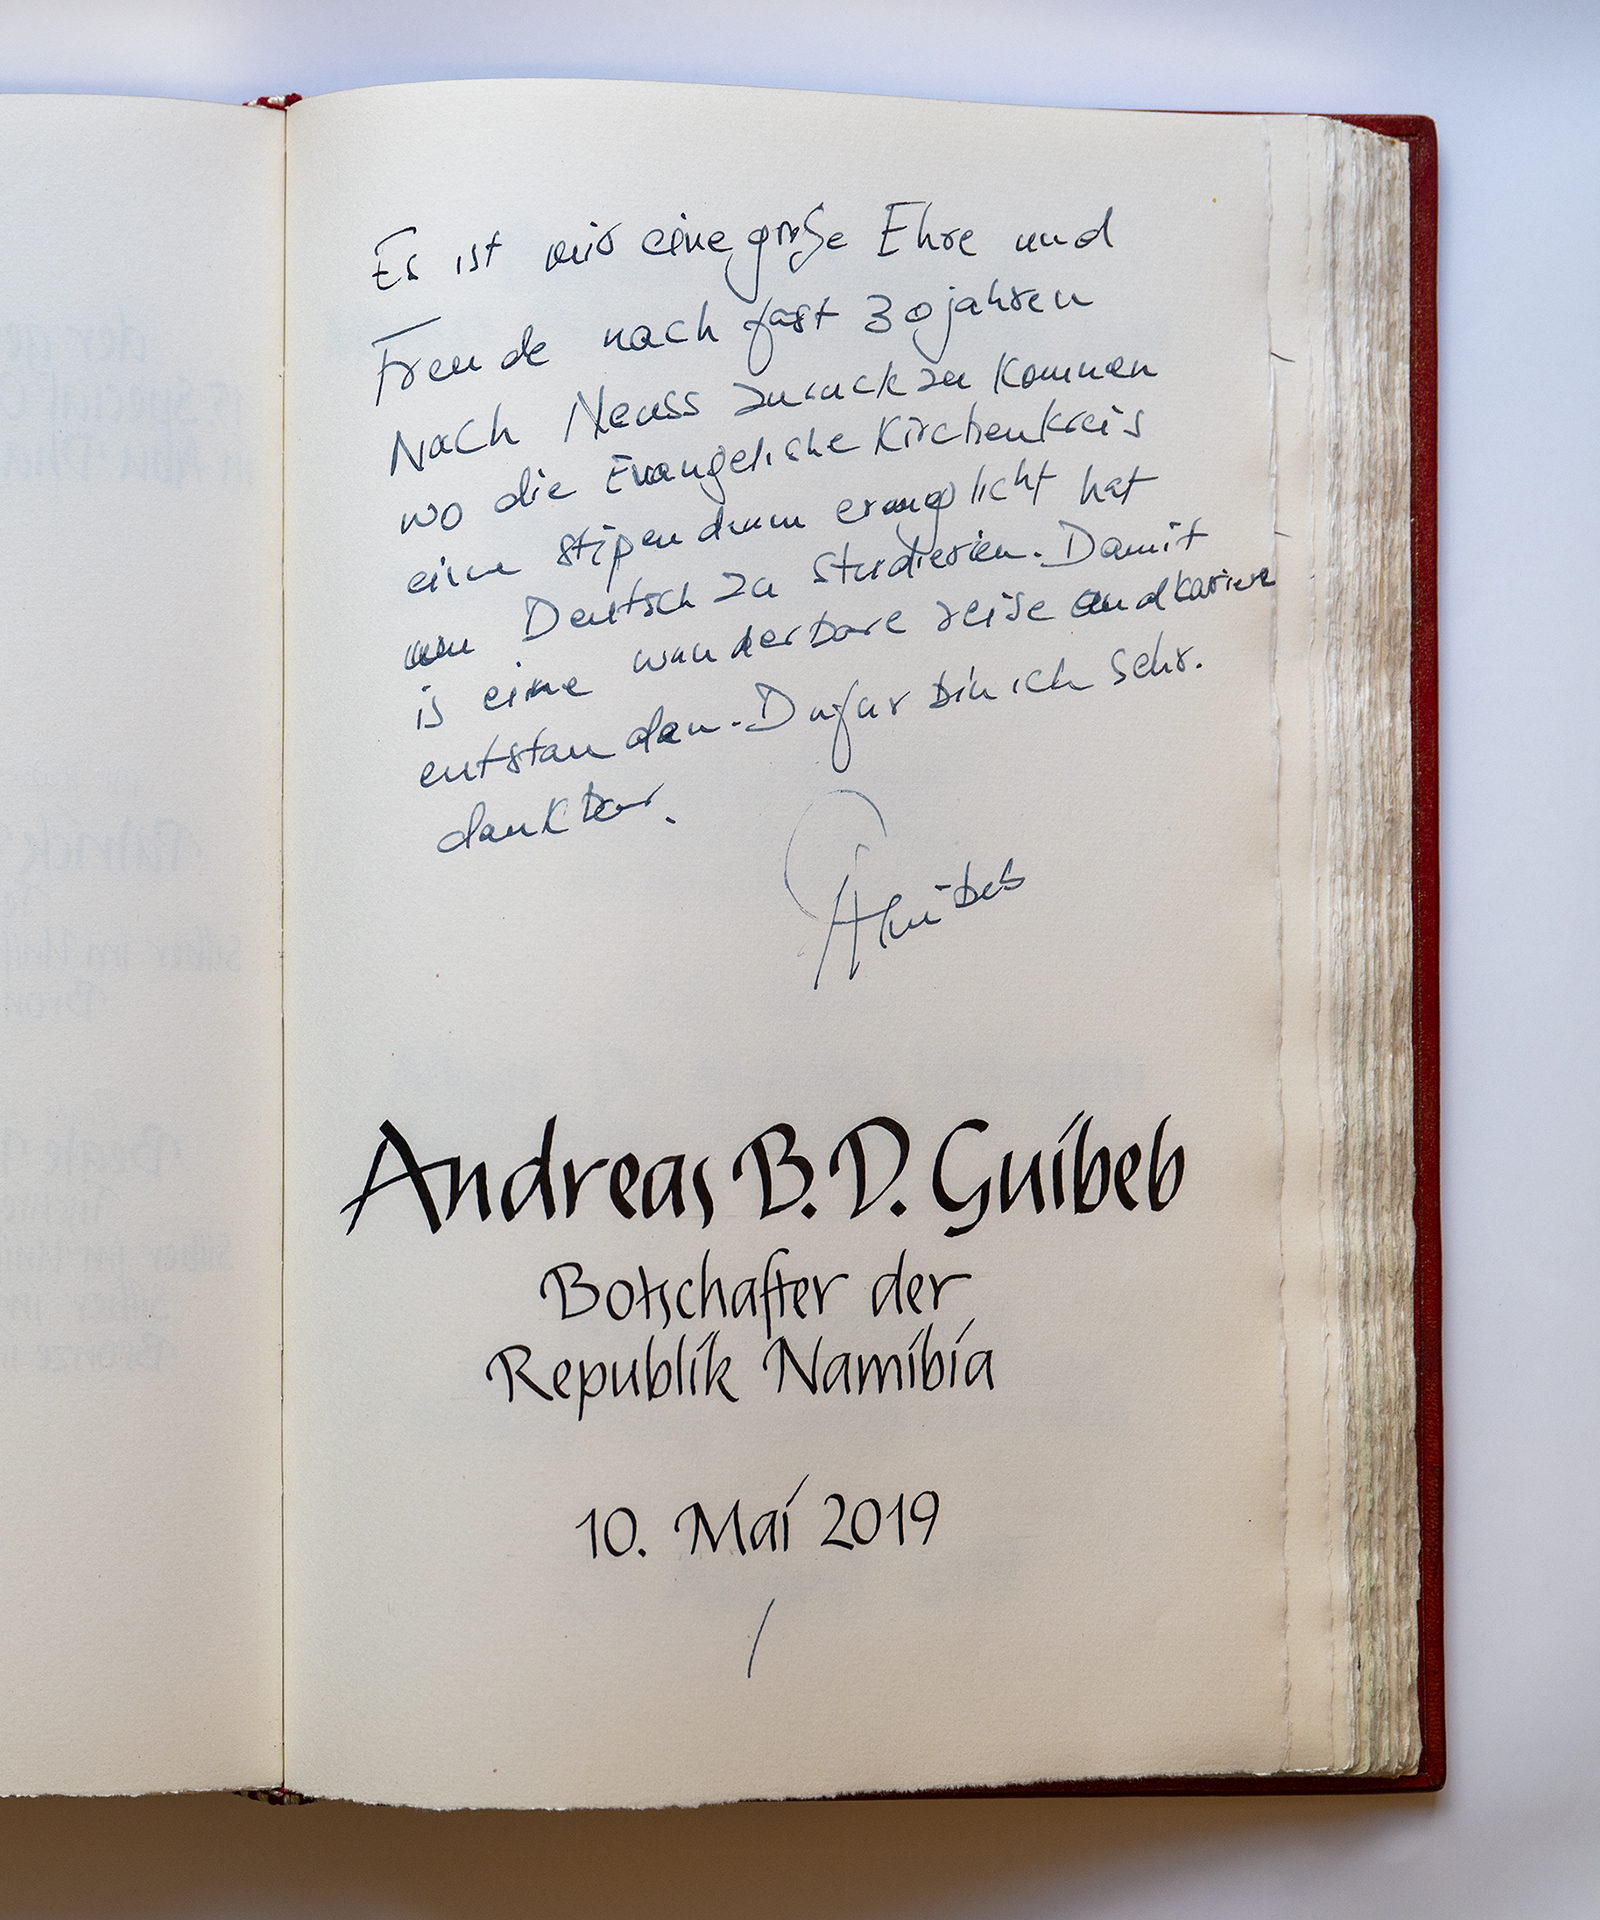 Es ist mir eine große Ehre und
Freude nach fast 30 jahren
Nach Neuss zuruck zu kommen
wo die Evangelische Kirchenkreis
eine stipendium ermoglicht hat
um Deutsch zu studieren. Damit
is eine wunderbare reise und kariere
entstanden. Dafur bin ich sehr.
dankbar.
AGuibeb
Andreas B. D. Guibeb
Botschafter der
Republik Namibia
10. Mai 2019